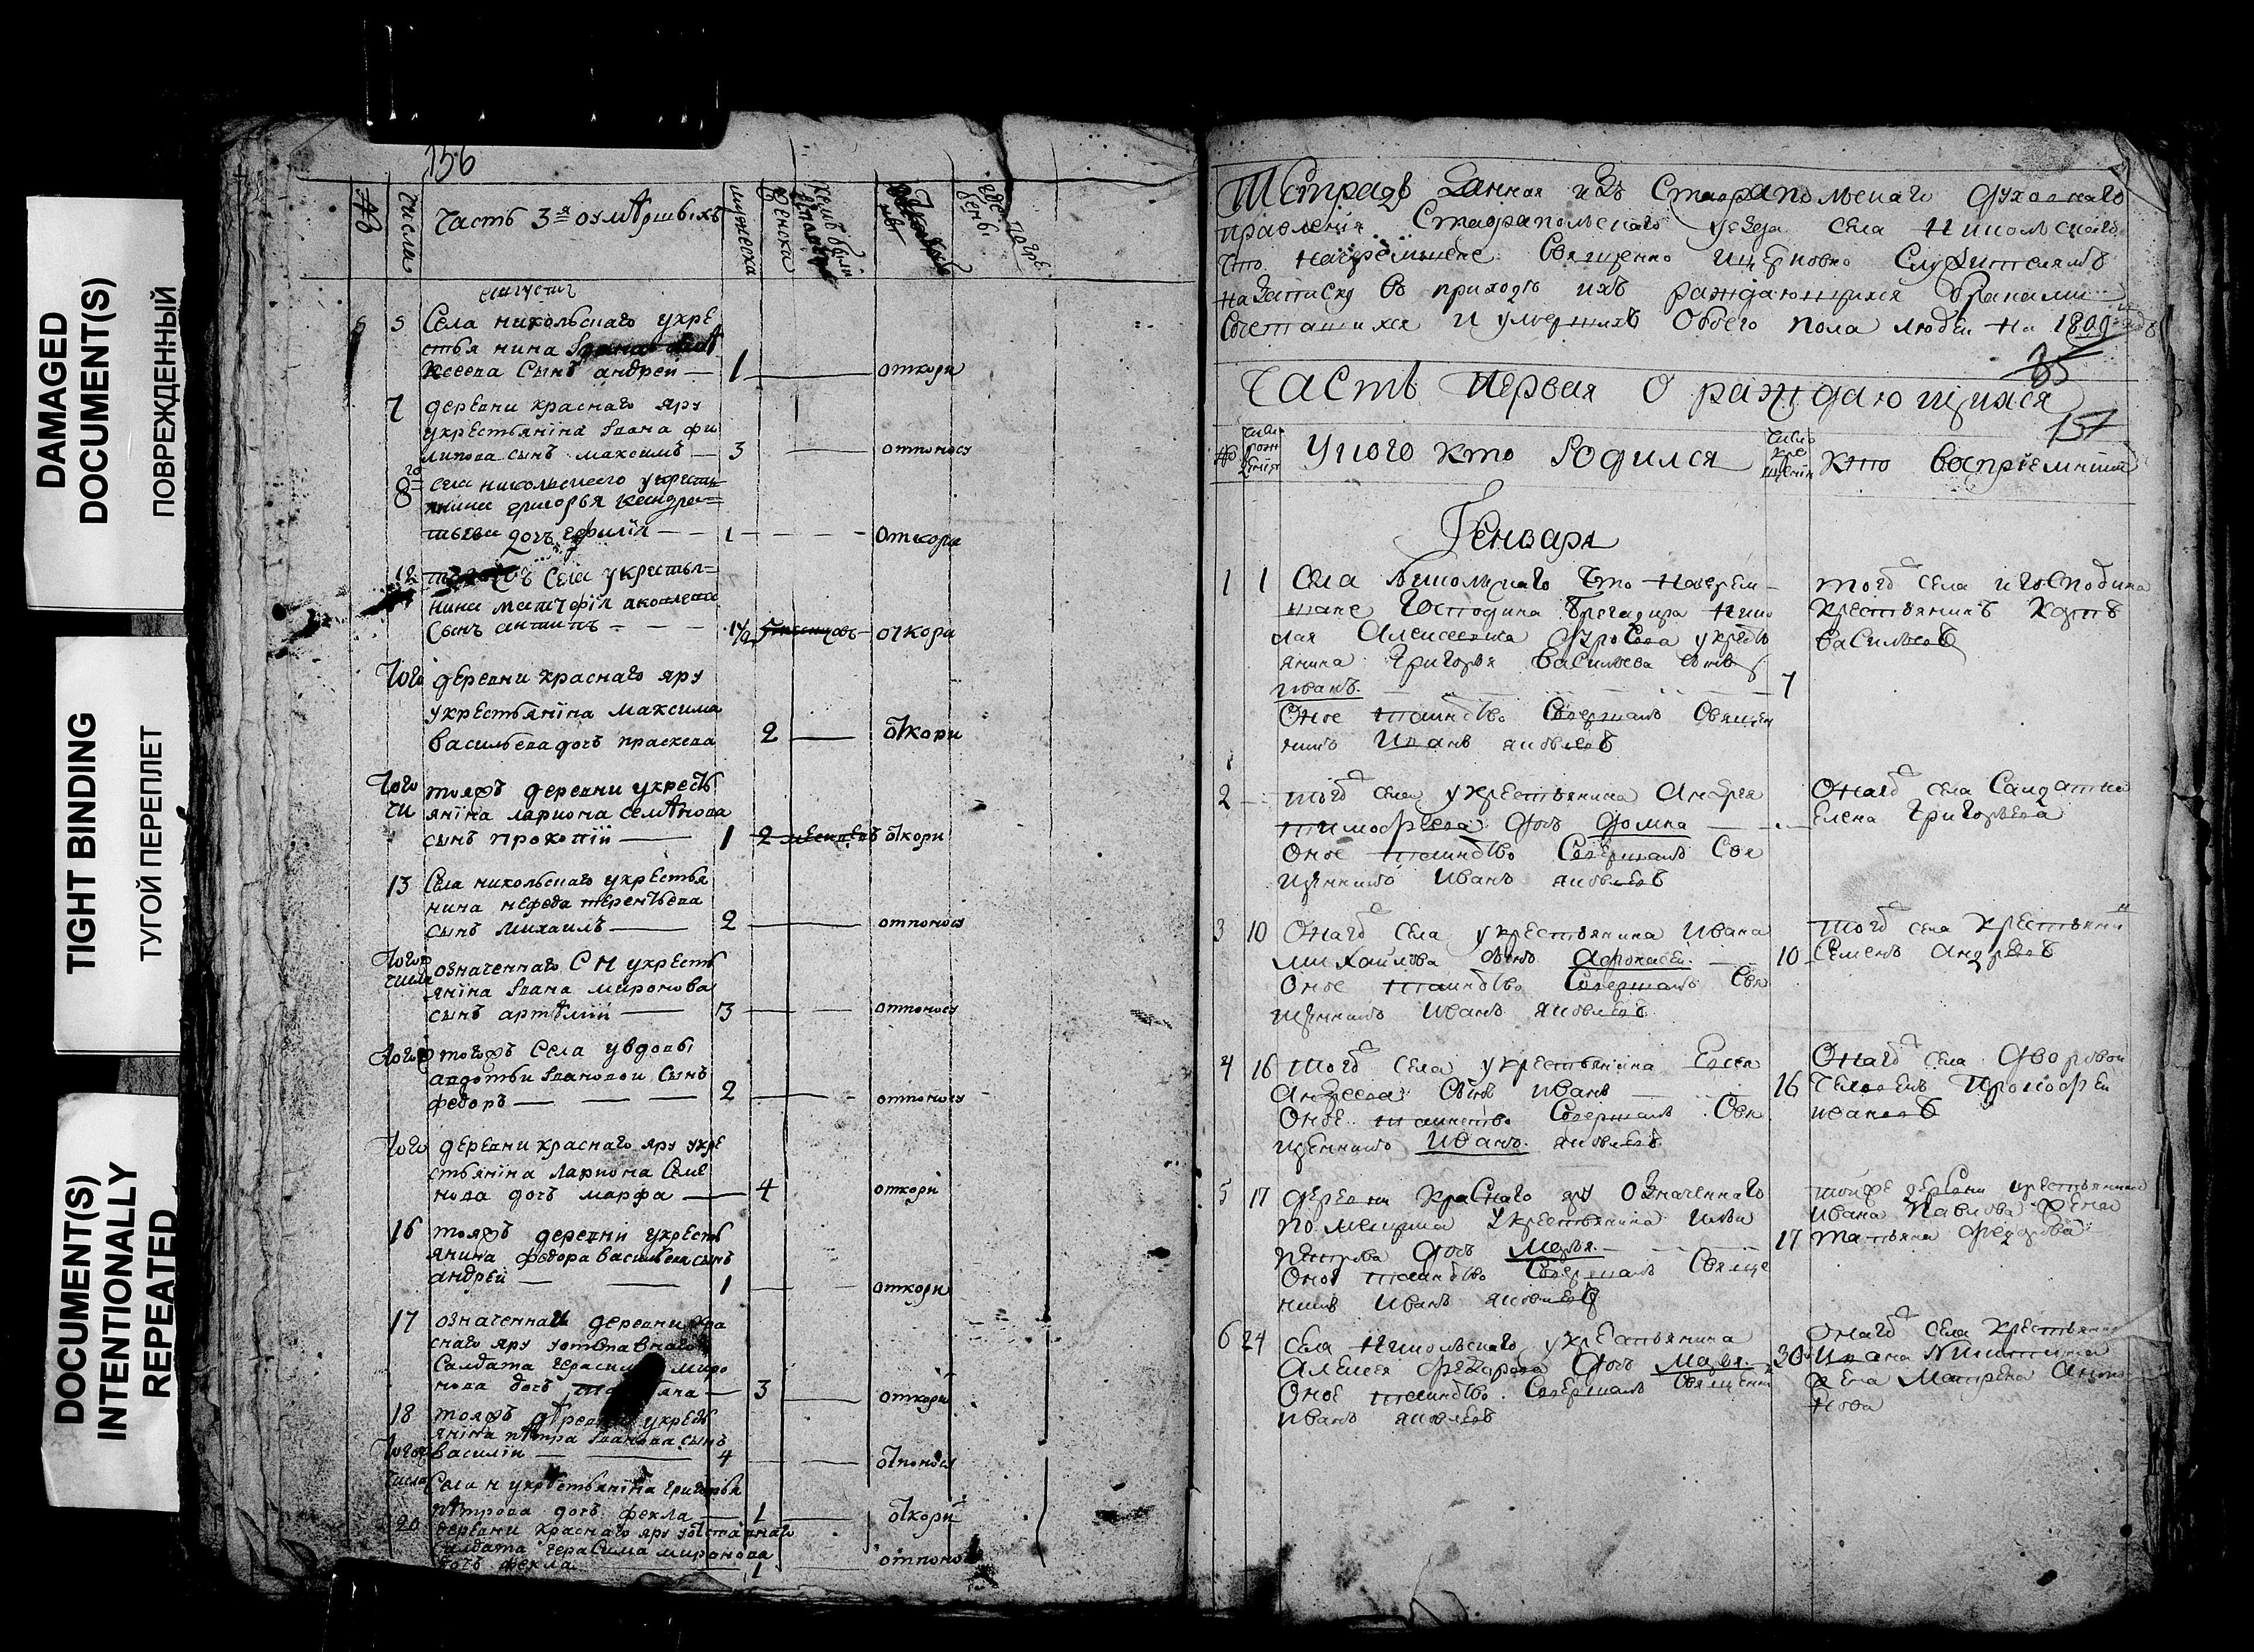 DAMAGED
DOCUMENT(S)
ПОВРЕЖДЕННЫЙ
TIGHT BINDING
ТУГОЙ ПЕРЕПЛЕТ
DOCUMENT(S)
INTENTIONALLY
REPEATED
156
№ числа Часть 3я оумѣршыхъ мужеска женска
августъ
5 Села никольскаго укре
стья нина
ксеева Сынъ андреи — 1 откори
7 деревни краснаго яру
укрестьянина Iвана фи
липова сынъ максимъ — 3 отпоносу
8 села никольскаго укресть
янина григорья кондра
тьева дочь — 1 откори
12 Села укрестья
нина
Сынъ антипъ 1/2 откори
Того деревни краснаго яру
укрестьянина максима
васильева дочь праскева 2 откори
Того тояжъ деревни укресть
чи янина лариона семѣнова
сынъ прокопiи — 1 2 месецевъ откори
13 Села никольскаго укрестья
нина нефеда терентьева
сынъ михаилъ — 2 отпоносу
Тогож означеннаго С Н укресть
числа янина Iвана миронова
сынъ артѣмiй — 3 отпоносу
Тогож тогожъ Села увдовы
авдотьи Iвановои Сынъ
федоръ — 2 отпоносу
Того деревни краснаго яру укре
стьянина лариона Семе
нова дочь марфа — 4 откори
16 тояжъ деревни укресть
янина федора васильева сынъ
андреи — 1 откори
17 означенныи деревни кра
снаго яру уотставнаго
Салдата герасима миро
нова дочь — 3 откори
18 тояжъ деревни укресть
янина пѣтра Iванова сынъ
Тогож василiи — 4 отпоносу
числа Села н укрѣстьянина григорья
пѣтрова дочь фекла — 1 откори
20 деревни краснаго яру уотставнаго
салдата герасима миронова
дочь фекла 1 отпоносу
Тетрадь данная изъ Ставрапольскаго духовнаго
правления Ставрапольскаго уезда села Никольскаго
что Священно и церковно Служителямъ
на записку въ приходѣ ихъ раждающихся браками
Сочеташихся и умершихъ Обоего пола людеи на 1809й годъ
35
Часть первая о раждающихся
157
№ число рождения Укого кто Родился число крещения кто воспрiемники
Генваря
1 1 Села Никольскаго что
Господина Брегадира Нико
лая Алексеевича укресть
янина Григорья Васильева сынъ
иванъ. 7
Оное таинство Совершалъ Священ
никъ Иванъ яковлевъ
тогож села и господина
крестьянинъ
васильевъ
2 тогож села укрестьянина Андрея
тимофеева дочь домна
Оное таинство Совершалъ Свя
щенникъ Иванъ яковлевъ
Онагож села Салдатка
Елена Григорьева
3 10 Онагож села укрестьянина Ивана
михаилова сынъ Афонасеи. 10
Оное таинство Совершалъ Свя
щенникъ Иванъ яковлевъ
тогож села крестьянин
Семенъ Андреевъ
4 16 тогож села укрестьянина
Андреева сынъ иванъ 16
Оное таинство Совершалъ Свя
щенникъ Иванъ яковлевъ
Онагож села дворовои
человекъ
ивановъ
5 17 деревни Краснаго яру Означеннаго
помещика укрестьянина
петрова дочь Марья. 17
Оное таинство Совершалъ Свяще
никъ Иванъ яковлевъ
тоиже деревни крестьянина
ивана Павлова жена
татьяна федорова
6 24 села Никольскаго укрестьянина
Алексея федорова дочь Марья. 30
Оное таинство Совершалъ Священни
Иванъ яковлевъ
Онагож села крестьянина
Ивана Никитина
жена Матрена